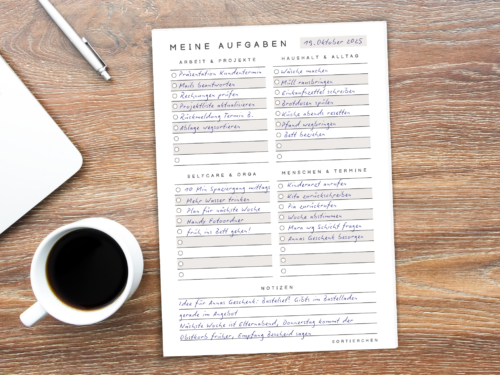 MEINE AUFGABEN
19. Oktober 2025
ARBEIT & PROJEKTE
Präsentation Kundentermin
Mails beantworten
Rechnungen prüfen
Projektliste aktualisieren
Rückmeldung Termin B.
Ablage wegsortieren
HAUSHALT & ALLTAG
Wäsche machen
Müll rausbringen
Einkaufszettel schreiben
Brotdosen spülen
Küche abends resetten
Pfand wegbringen
Bett beziehen
SELFCARE & ORGA
10 Min Spaziergang mittags
Mehr Wasser trinken
Plan für nächste Woche
Handy Fotoordner
früh ins Bett gehen!
MENSCHEN & TERMINE
Kinderarzt anrufen
Kita zurückschreiben
Pia zurückrufen
Woche abstimmen
Mara wg Schicht fragen
Annas Geschenk besorgen
NOTIZEN
Idee für Annas Geschenk: Bastelset! Gibts im Bastelladen
gerade im Angebot
Nächste Woche ist Elternabend, Donnerstag kommt der
Obstkorb früher, Empfang Bescheid sagen
SORTIERCHEN